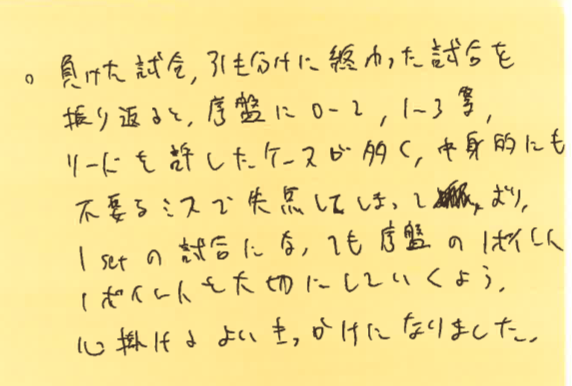 。負けた試合,引き分けに終わった試合を
振り返ると,序盤に0-2,1-3等,
リードを許したケースが多く,中身的にも
不要なミスで失点してしまって おり,
1setの試合になっても序盤の1ポイント
1ポイントを大切にしていくよう,
心掛けるよいきっかけになりました。